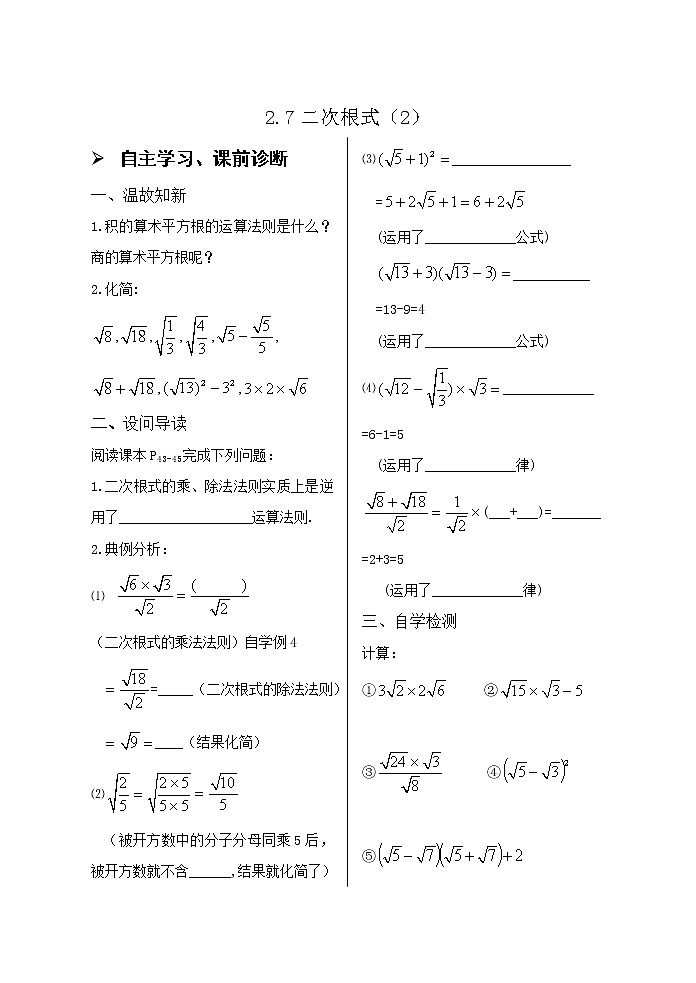 2.7二次根式（2）
➢ 自主学习、课前诊断
一、温故知新
1.积的算术平方根的运算法则是什么？
商的算术平方根呢？
2.化简:
√8,√18,√(1/3),√(4/3),√5−√5/5,
√8+√18,(√13)²−3²,3×2×√6
二、设问导读
阅读课本P43-45完成下列问题:
1.二次根式的乘、除法法则实质上是逆
用了___________________运算法则.
2.典例分析:
⑴ (√6×√3)/√2=(      )/√2
(二次根式的乘法法则)自学例4
=√18/√2=_____(二次根式的除法法则)
=√9=____(结果化简)
⑵√(2/5)=√((2×5)/(5×5))=√10/5
(被开方数中的分子分母同乘5后,
被开方数就不含______,结果就化简了)
⑶(√5+1)²=_________________
=5+2√5+1=6+2√5
(运用了_____________公式)
(√13+3)(√13−3)=___________
=13-9=4
(运用了_____________公式)
⑷(√12−√(1/3))×√3=_____________
=6-1=5
(运用了_____________律)
(√8+√18)/√2=1/√2×(___+___)=_______
=2+3=5
(运用了_____________律)
三、自学检测
计算:
①3√2×2√6 ②√15×√3−5
③(√24×√3)/√8 ④(√5−√3)²
⑤(√5−√7)(√5+√7)+2